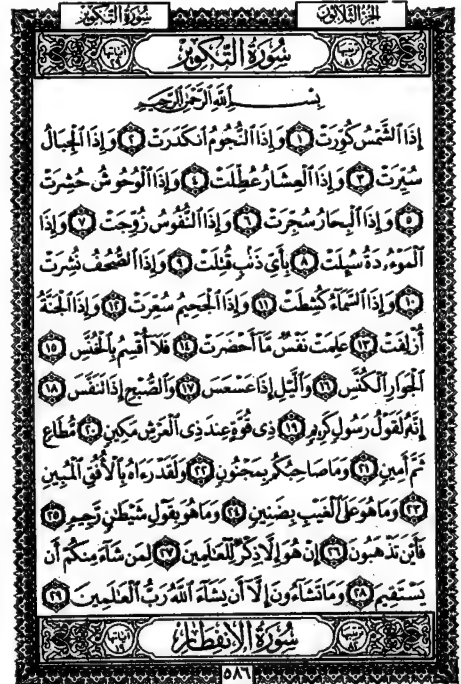 سُورَةُ التَّكْوِيرِ الجُزْءُ الثَّلَاثُونَ
آيَاتُهَا ٢٩ سُورَةُ التَّكْوِيرِ تَرْتِيبُهَا ٨١
بِسْمِ اللَّهِ الرَّحْمَٰنِ الرَّحِيمِ
إِذَا ٱلشَّمْسُ كُوِّرَتْ ١ وَإِذَا ٱلنُّجُومُ ٱنكَدَرَتْ ٢ وَإِذَا ٱلْجِبَالُ
سُيِّرَتْ ٣ وَإِذَا ٱلْعِشَارُ عُطِّلَتْ ٤ وَإِذَا ٱلْوُحُوشُ حُشِرَتْ
٥ وَإِذَا ٱلْبِحَارُ سُجِّرَتْ ٦ وَإِذَا ٱلنُّفُوسُ زُوِّجَتْ ٧ وَإِذَا
ٱلْمَوْءُۥدَةُ سُئِلَتْ ٨ بِأَىِّ ذَنۢبٍ قُتِلَتْ ٩ وَإِذَا ٱلصُّحُفُ نُشِرَتْ
١٠ وَإِذَا ٱلسَّمَآءُ كُشِطَتْ ١١ وَإِذَا ٱلْجَحِيمُ سُعِّرَتْ ١٢ وَإِذَا ٱلْجَنَّةُ
أُزْلِفَتْ ١٣ عَلِمَتْ نَفْسٌ مَّآ أَحْضَرَتْ ١٤ فَلَآ أُقْسِمُ بِٱلْخُنَّسِ ١٥
ٱلْجَوَارِ ٱلْكُنَّسِ ١٦ وَٱلَّيْلِ إِذَا عَسْعَسَ ١٧ وَٱلصُّبْحِ إِذَا تَنَفَّسَ ١٨
إِنَّهُۥ لَقَوْلُ رَسُولٍ كَرِيمٍ ١٩ ذِى قُوَّةٍ عِندَ ذِى ٱلْعَرْشِ مَكِينٍ ٢٠ مُّطَاعٍ
ثَمَّ أَمِينٍ ٢١ وَمَا صَاحِبُكُم بِمَجْنُونٍ ٢٢ وَلَقَدْ رَءَاهُ بِٱلْأُفُقِ ٱلْمُبِينِ
٢٣ وَمَا هُوَ عَلَى ٱلْغَيْبِ بِضَنِينٍ ٢٤ وَمَا هُوَ بِقَوْلِ شَيْطَٰنٍ رَّجِيمٍ ٢٥
فَأَيْنَ تَذْهَبُونَ ٢٦ إِنْ هُوَ إِلَّا ذِكْرٌ لِّلْعَٰلَمِينَ ٢٧ لِمَن شَآءَ مِنكُمْ أَن
يَسْتَقِيمَ ٢٨ وَمَا تَشَآءُونَ إِلَّآ أَن يَشَآءَ ٱللَّهُ رَبُّ ٱلْعَٰلَمِينَ ٢٩
آيَاتُهَا ١٩ سُورَةُ الِانْفِطَارِ تَرْتِيبُهَا ٨٢
٥٨٦